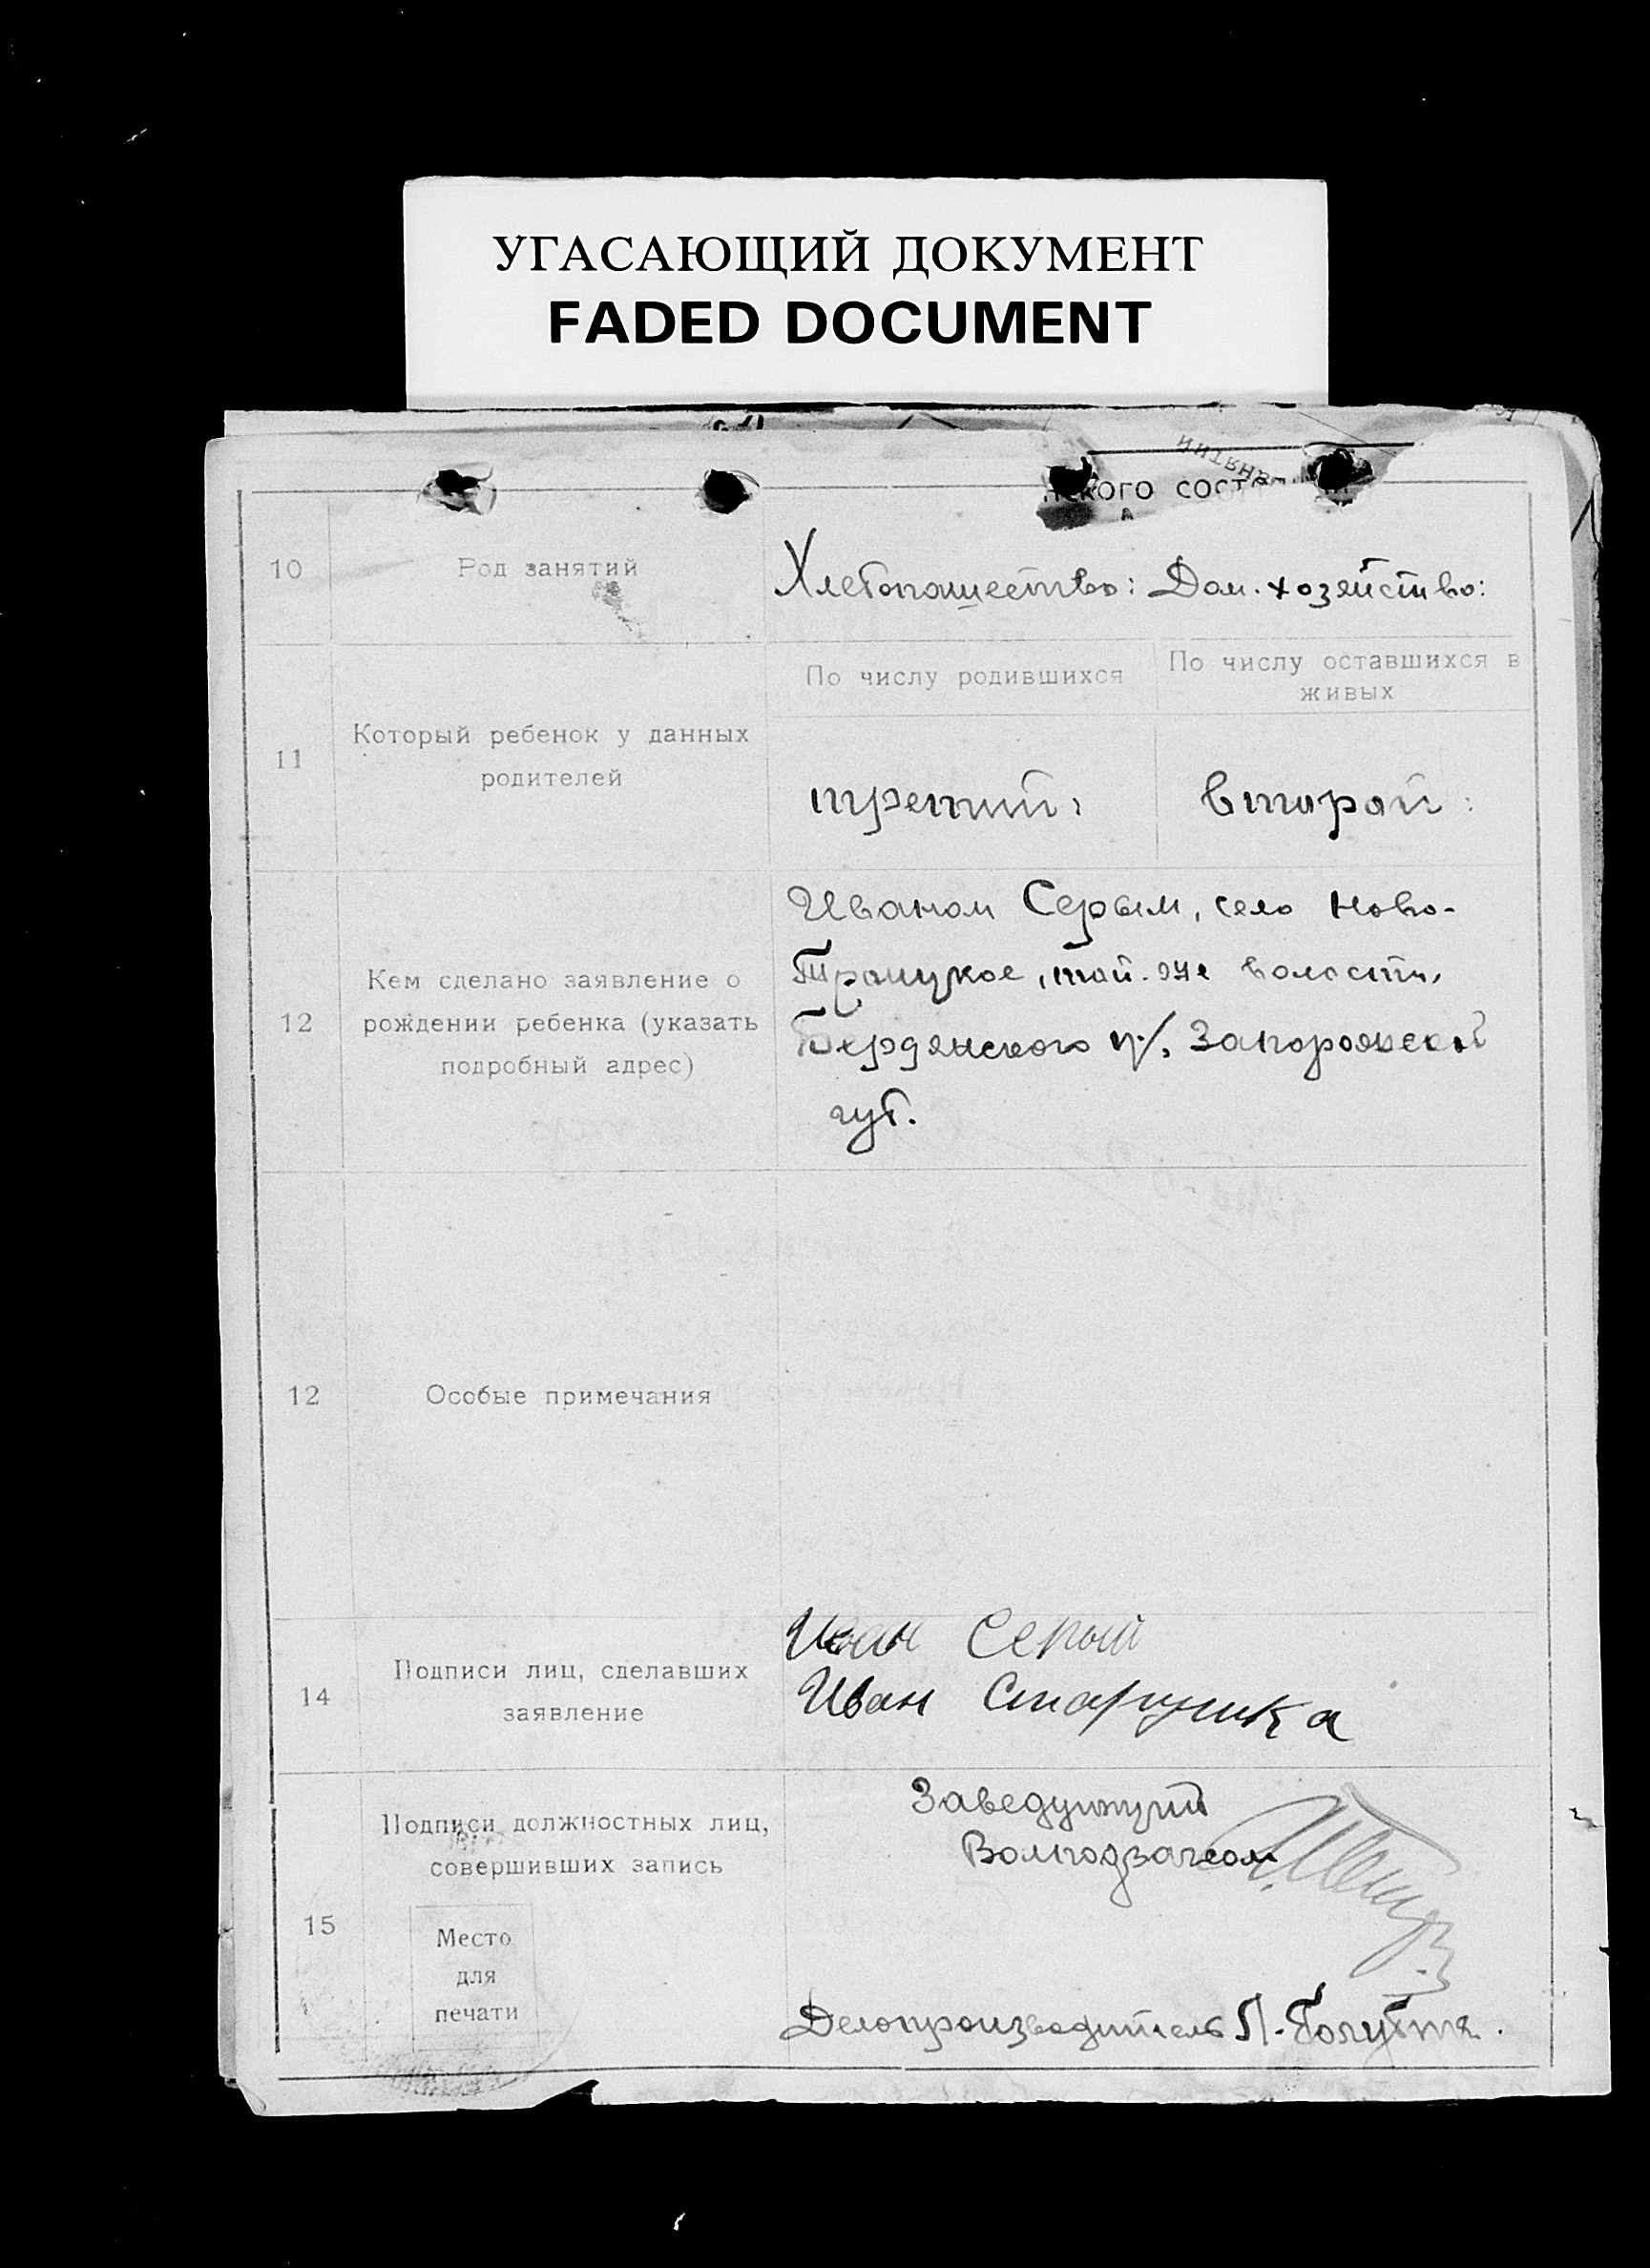 УГАСАЮЩИЙ ДОКУМЕНТ
FADED DOCUMENT
нского
10 Род занятий Хлебопашество: Дом. хозяйство:
По числу родившихся По числу оставшихся в
живых
11 Который ребенок у данных
родителей
третий: второй:
Иваном Серым, село Ново-
Кем сделано заявление о Троицкое, той-же волости,
12 рождении ребенка (указать Бердянского у/, Запорожской
подробный адрес)
губ.
12 Особые примечания
Иван Серый
14 Подписи лиц, сделавших Иван Старушка
заявление
Заведующий
Подписи должностных лиц,
совершивших запись
15
Место
для
печати
Делопроизводитель П.